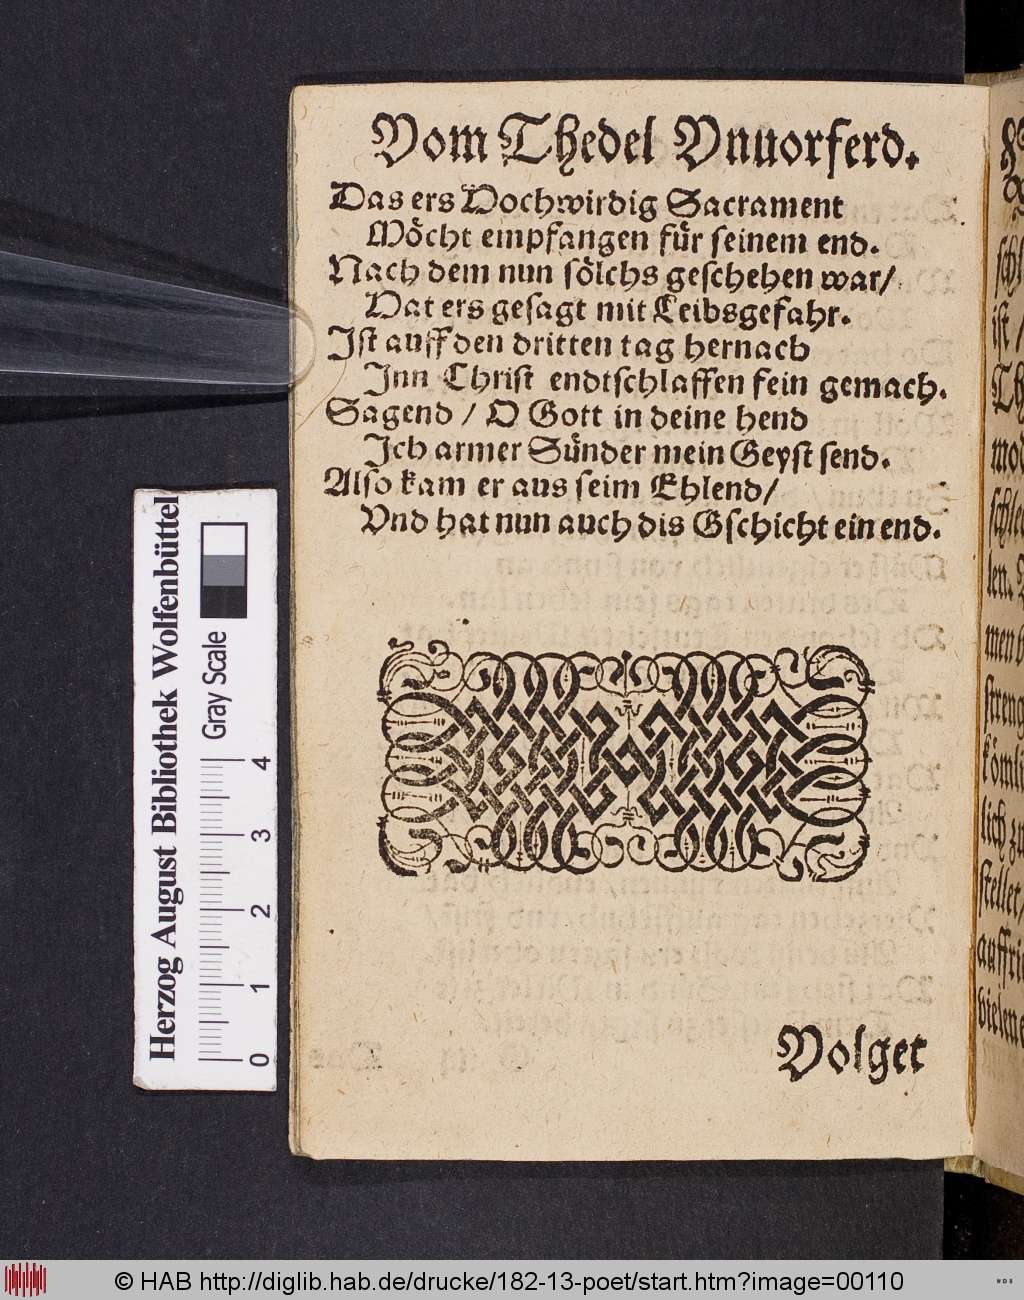 Vom Thedel Vnuorferd.
Das ers Hochwirdig Sacrament
Möcht empfangen für seinem end.
Nach dem nun sölchs geschehen war/
Hat ers gesagt mit Leibsgefahr.
Ist auff den dritten tag hernach
Inn Christ endtschlaffen fein gemach.
Sagend / O Gott in deine hend
Ich armer Sünder mein Geyst send.
Also kam er aus seim Ehlend/
Vnd hat nun auch dis Gschicht ein end.
Volget
Herzog August Bibliothek Wolfenbüttel
Gray Scale
0 1 2 3 4
schl
ist /
Th
mod
schle
len.
men
streng
kömli
lich zu
stellet/
auffri
vielen
© HAB http://diglib.hab.de/drucke/182-13-poet/start.htm?image=00110